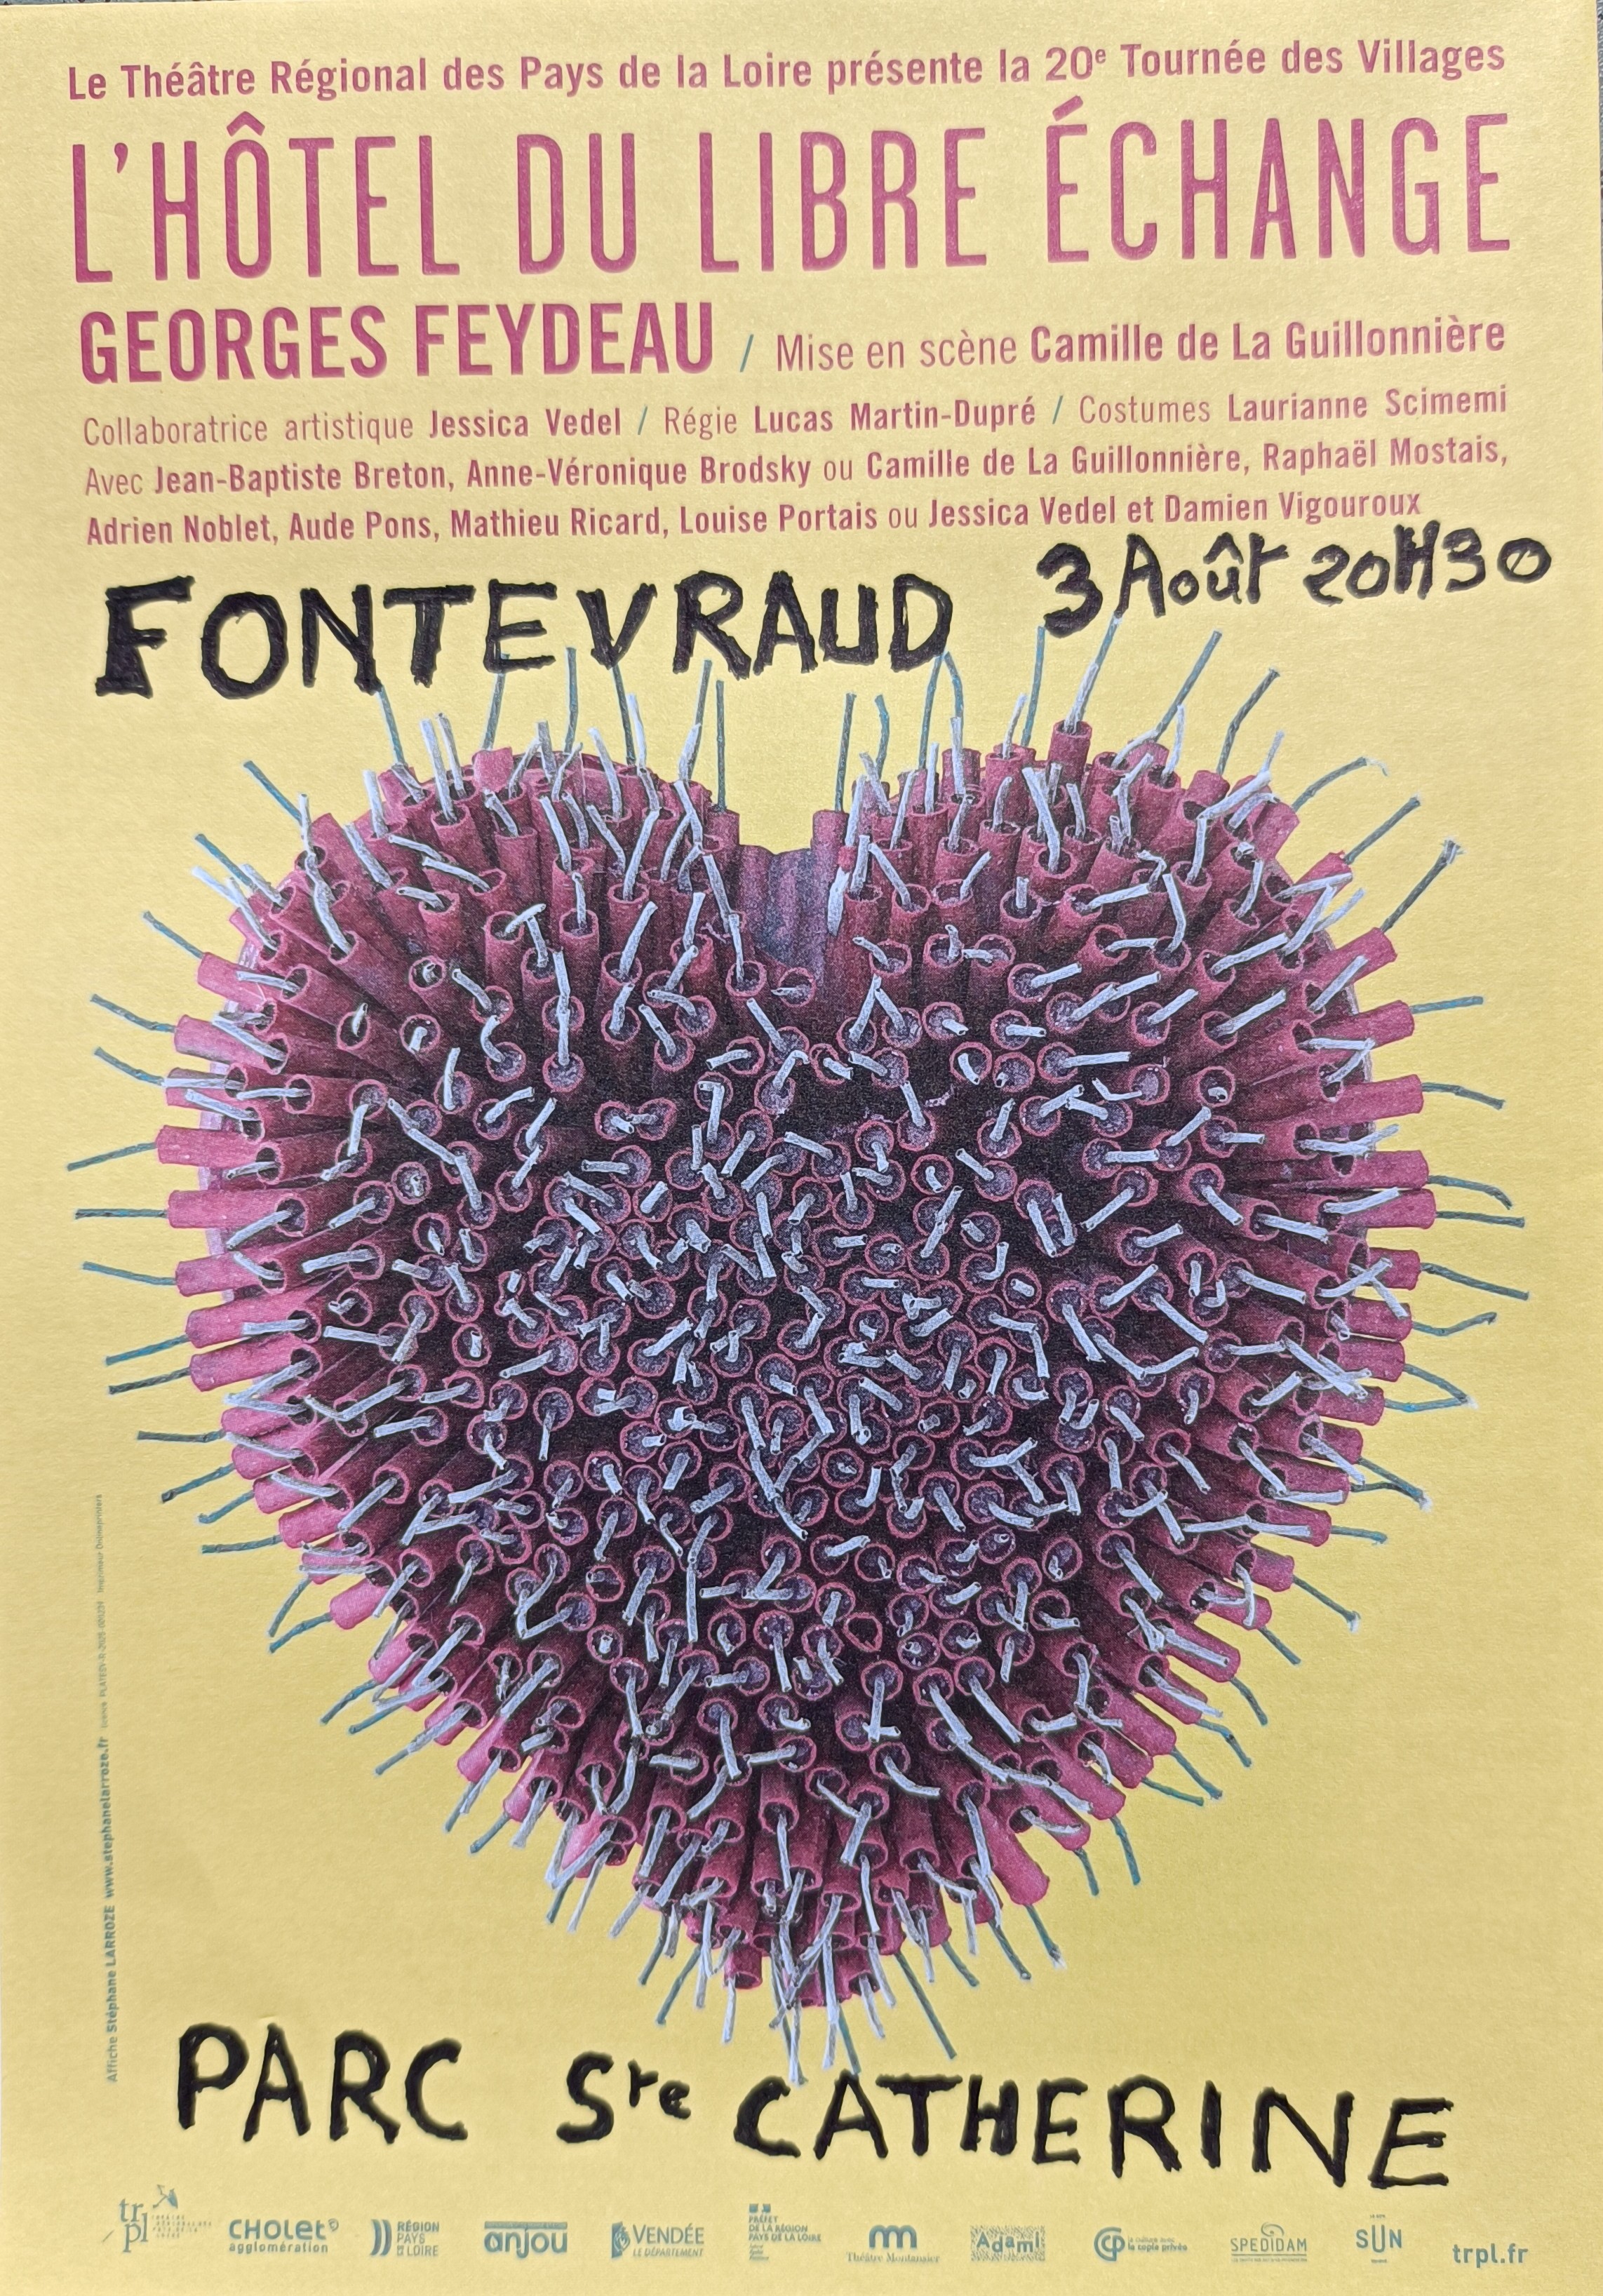 Le Théâtre Régional des Pays de la Loire présente la 20e Tournée des Villages
L'HÔTEL DU LIBRE ÉCHANGE
GEORGES FEYDEAU / Mise en scène Camille de La Guillonnière
Collaboratrice artistique Jessica Vedel / Régie Lucas Martin-Dupré / Costumes Laurianne Scimemi
Avec Jean-Baptiste Breton, Anne-Véronique Brodsky ou Camille de La Guillonnière, Raphaël Mostais,
Adrien Noblet, Aude Pons, Mathieu Ricard, Louise Portais ou Jessica Vedel et Damien Vigouroux
FONTEVRAUD 3 Août 20H30
Affiche Stéphane LARROZE www.stephanelarroze.fr
PARC Ste CATHERINE
trpl
CHOLET agglomération
RÉGION PAYS DE LA LOIRE
anjou
VENDÉE LE DÉPARTEMENT
PRÉFET DE LA RÉGION PAYS DE LA LOIRE
Théâtre Montansier
Adami
la copie privée
SPEDIDAM
SUN
trpl.fr